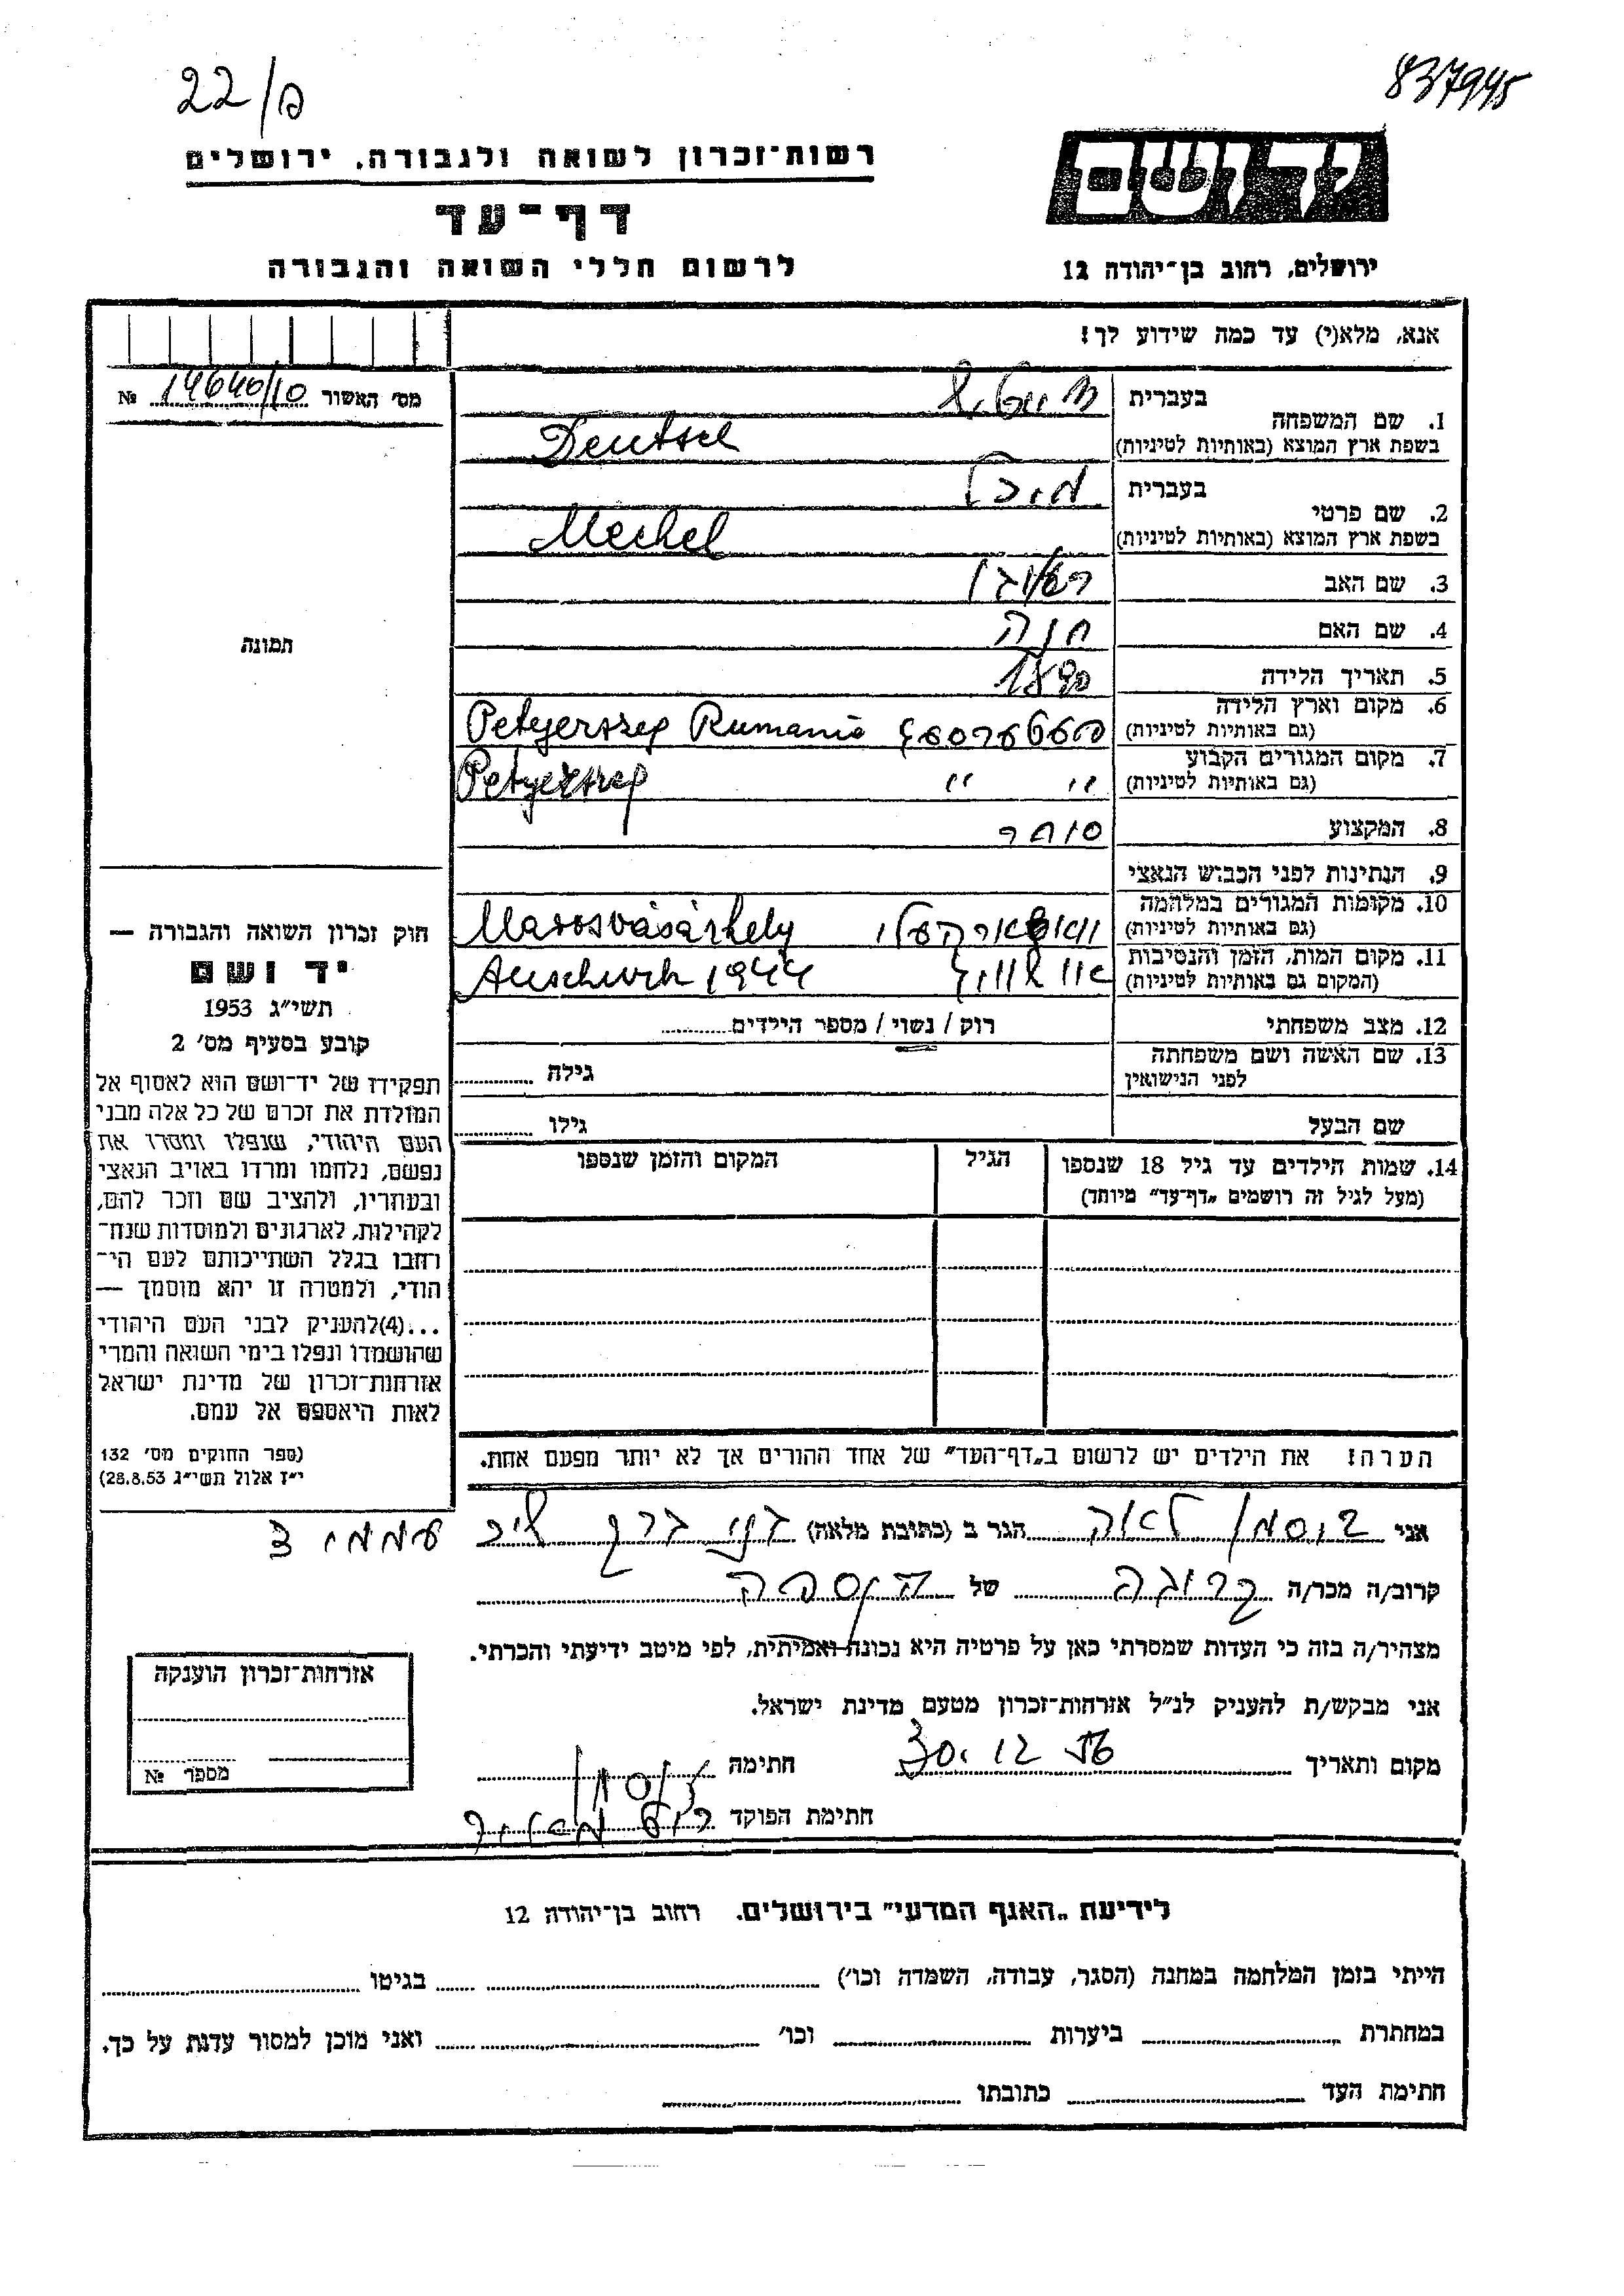 22/ד
837945
רשות-זכרון לשואה ולגבורה, ירושלים
ידושם
דף-עד
לרשום חללי השואה והגבורה
ירושלים, רחוב בן-יהודה 12
אנא, מלא(י) עד כמה שידוע לך!
מס' האשור № 14646/10
1. שם המשפחה
בעברית
בשפת ארץ המוצא (באותיות לטיניות) Deutsch
2. שם פרטי
בעברית מיכל
בשפת ארץ המוצא (באותיות לטיניות) Mechel
3. שם האב ראובן
4. שם האם חנה
5. תאריך הלידה 1890
6. מקום וארץ הלידה
(גם באותיות לטיניות) Petyerszeg Rumania
7. מקום המגורים הקבוע
(גם באותיות לטיניות) " " Petyerszeg
8. המקצוע סוחר
9. הנתינות לפני הכבוש הנאצי
10. מקומות המגורים במלחמה
(גם באותיות לטיניות) Marosvásárhely
11. מקום המות, הזמן והנסיבות
(המקום גם באותיות לטיניות) אושוויץ Auschwitz 1944
12. מצב משפחתי רוק / נשוי / מספר הילדים
13. שם האשה ושם משפחתה
לפני הנישואין
גילה
שם הבעל
גילו
14. שמות הילדים עד גיל 18 שנספו
(מעל לגיל זה רושמים „דף-עד" מיוחד)
הגיל
המקום והזמן שנספו
הערה! את הילדים יש לרשום ב„דף-העד" של אחד ההורים אך לא יותר מפעם אחת.
תמונה
חוק זכרון השואה והגבורה —
יד ושם
תשי"ג 1953
קובע בסעיף מס' 2
תפקידו של יד-ושם הוא לאסוף אל
המולדת את זכרם של כל אלה מבני
העם היהודי, שנפלו ומסרו את
נפשם, נלחמו ומרדו באויב הנאצי
ובעוזריו, ולהציב שם וזכר להם,
לקהילות, לארגונים ולמוסדות שנח-
רבו בגלל השתייכותם לעם הי-
הודי, ולמטרה זו יהא מוסמך —
...(4)להעניק לבני העם היהודי
שהושמדו ונפלו בימי השואה והמרי
אזרחות-זכרון של מדינת ישראל
לאות היאספם אל עמם.
(ספר החוקים מס' 132
י"ז אלול תשי"ג 28.8.53)
אני לאה הגר ב (כתובת מלאה) בני ברק
קרוב/ה מכר/ה קרובה של
מצהיר/ה בזה כי העדות שמסרתי כאן על פרטיה היא נכונה ואמיתית, לפי מיטב ידיעתי והכרתי.
אני מבקש/ת להעניק לנ"ל אזרחות-זכרון מטעם מדינת ישראל.
מקום ותאריך 30.12.56 חתימה
חתימת הפוקד
אזרחות-זכרון הוענקה
מספר №
לידיעת „האגף המדעי" בירושלים. רחוב בן-יהודה 12
הייתי בזמן המלחמה במחנה (הסגר, עבודה, השמדה וכו') בגיטו
במחתרת ביערות וכו' ואני מוכן למסור עדות על כך.
חתימת העד כתובתו